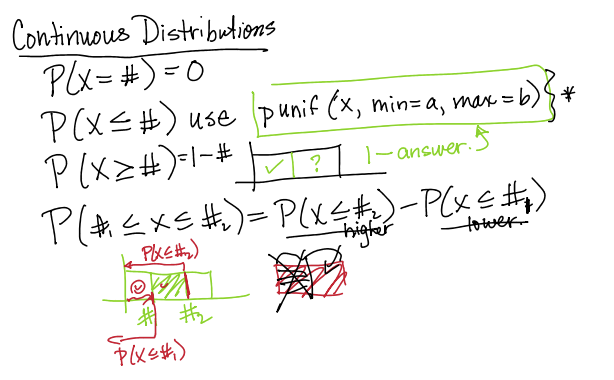 Continuous Distributions
P(X = #) = 0
P(X ≤ #) use punif (x, min=a, max=b) } *
P(X ≥ #) = 1 - #
✓ ? 1 - answer.
P(#₁ ≤ X ≤ #₂) = P(X ≤ #₂) - P(X ≤ #₁)
higher lower.
P(X ≤ #₂)
# #₂
P(X ≤ #₁)